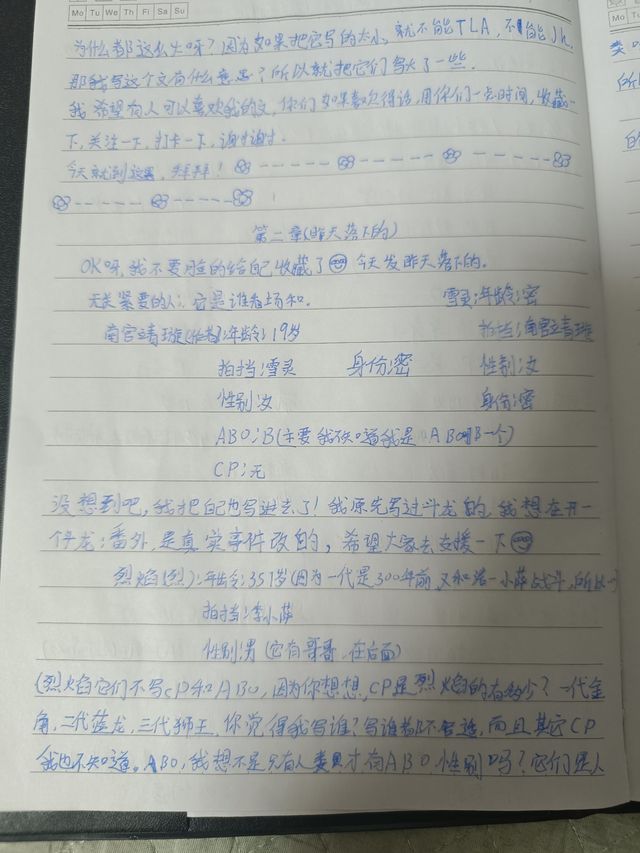 Mo Tu We Th Fr Sa Su
Mo Tu
为什么都这么火呀？因为如果把它写的太小，就不能TLA，不能Jk，
那我写这个文有什么意思？所以就把它们写大了一些。
我希望有人可以喜欢我的文，你们如果喜欢得话，用你们一点时间，收藏一
下，关注一下，打卡一下，谢谢。
今天就到这里，拜拜！
第二章(昨天落下的)
OK呀，我不要脸的给自己收藏了 今天发昨天落下的。
无关紧要的人：它是谁看场和。
雪灵：年龄：密
南宫立青璇(作者)：年龄：19岁
拍挡：南宫立青璇
拍挡：雪灵 身份：密 性别：女
性别：女 身份：密
ABO：B(主要我不知道我是ABO哪一个)
CP：无
没想到吧，我把自己也写进去了！我原先写过斗龙的，我想在开一
个龙：番外，是真实事件改的，希望大家去支援一下
烈焰(烈)：年龄：357岁(因为一代是300年前，又和洛一小萨战斗，所以
拍挡：李小萨
性别：男(它有哥哥，在后面)
(烈火焰它们不写CP和ABO，因为你想想，CP是烈焰的有多少？一代金
角，二代蓝龙，三代狮王，你觉得我写谁？写谁都不合适，而且其它CP
我也不知道。ABO，我想不是只有人类才有ABO性别吗？它们是人